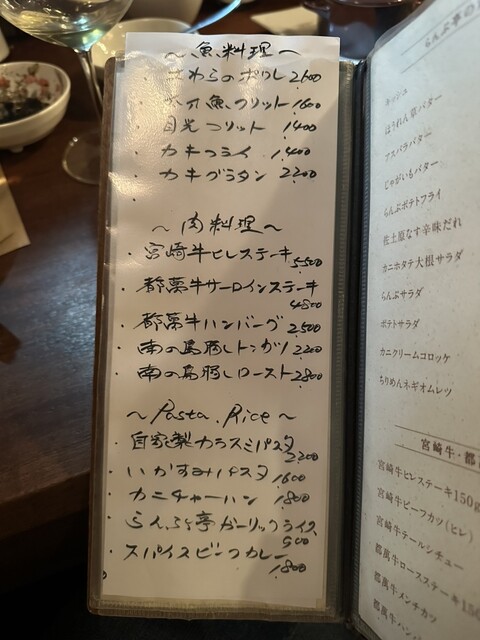 ～魚料理～
・さわらのポワレ 2600
・太刀魚フリット 1600
・目光フリット 1400
・カキフライ 1,400
・カキグラタン 2200
・
～肉料理～
・宮崎牛ヒレステーキ 5,500
・都萬牛サーロインステーキ
4800
・都萬牛ハンバーグ 2,500
・南の島豚しトンカツ 2200
・南の島豚しロースト 2800
～Pasta.Rice～
・自家製カラスミパスタ
2200
・いかすみパスタ 1600
・カニチャーハン 1,800
・らんぷ亭ガーリックライス
900
・スパイスビーフカレー
1,800
らんぷ亭の
キッシュ
ほうれん草バター
アスパラバター
じゃがいもバター
らんぷポテトフライ
佐土原なす辛味だれ
カニホタテ大根サラダ
らんぷサラダ
ポテトサラダ
カニクリームコロッケ
ちりめんネギオムレツ
宮崎牛・都
宮崎牛ヒレステーキ150
宮崎牛ビーフカツ(ヒレ)
宮崎牛テールシチュー
都萬牛ロースステーキ150
都萬牛メンチカツ
都萬牛ハン